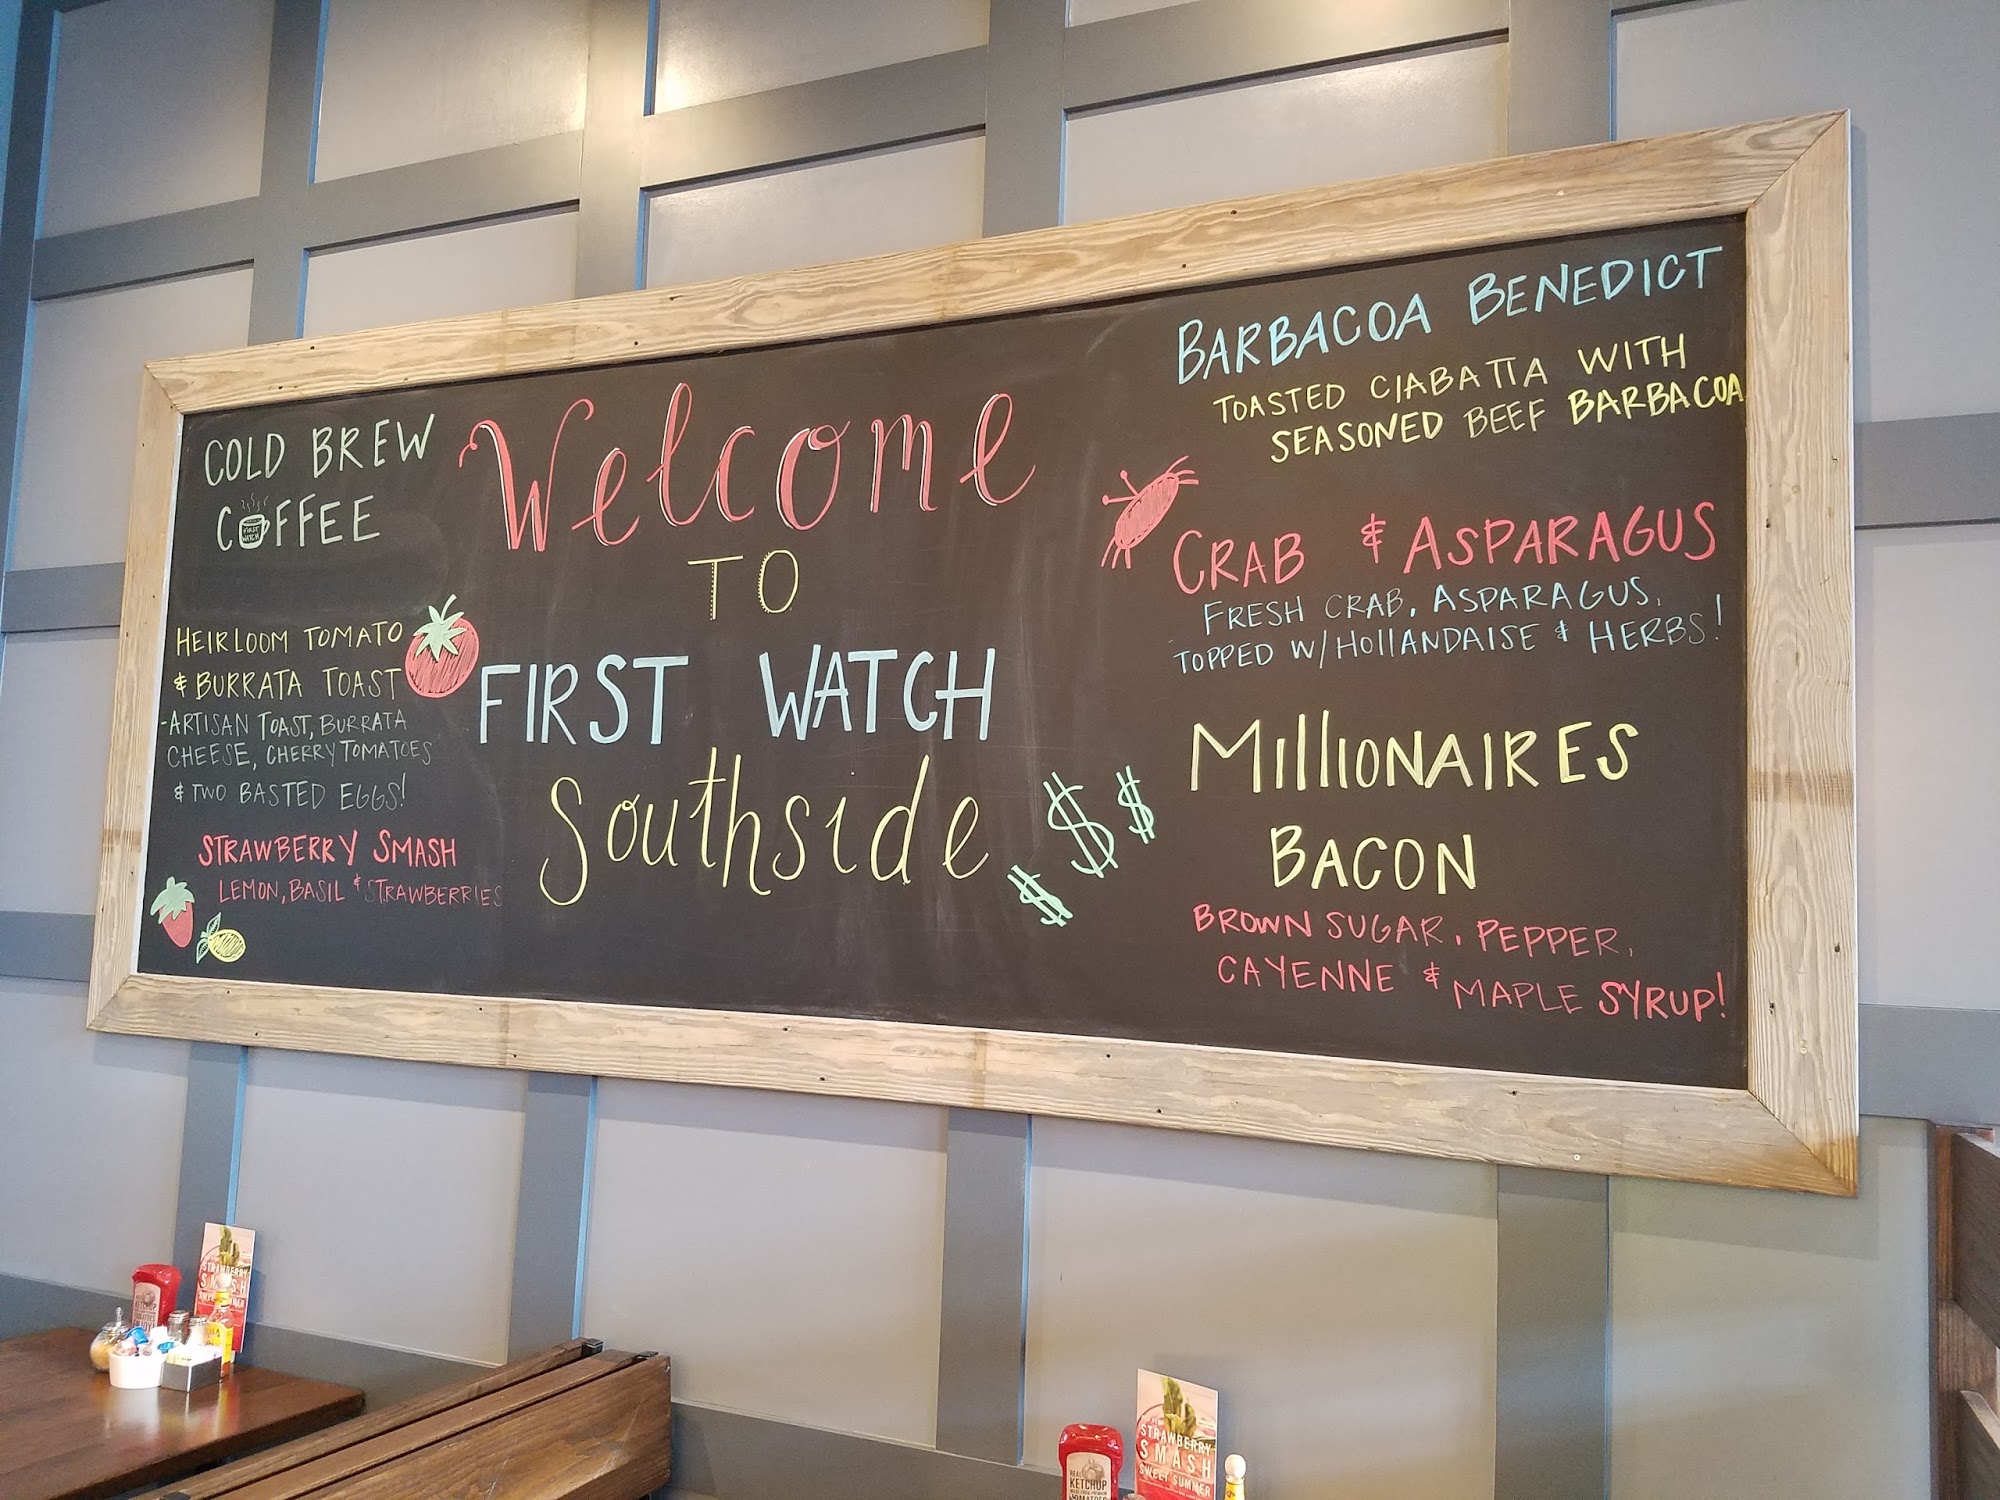 COLD BREW
COFFEE
FIRST
WATCH
HEIRLOOM TOMATO
& BURRATA TOAST
-ARTISAN TOAST, BURRATA
CHEESE, CHERRY TOMATOES
& TWO BASTED EGGS!
STRAWBERRY SMASH
LEMON, BASIL & STRAWBERRIES
Welcome
TO
FIRST WATCH
Southside
$ $ $
BARBACOA BENEDICT
TOASTED CIABATTA WITH
SEASONED BEEF BARBACOA
CRAB & ASPARAGUS
FRESH CRAB, ASPARAGUS,
TOPPED W/HOLLANDAISE & HERBS!
MILLIONAIRES
BACON
BROWN SUGAR, PEPPER,
CAYENNE & MAPLE SYRUP!
STRAWBERRY
SMASH
KETCHUP
STRAWBERRY
SMASH
SWEET SUMMER
REAL
KETCHUP